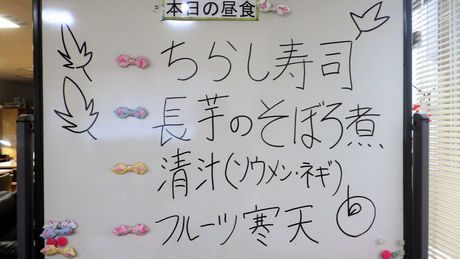 本日の昼食
ちらし寿司
長芋のそぼろ煮
清汁(ソウメン・ネギ)
フルーツ寒天